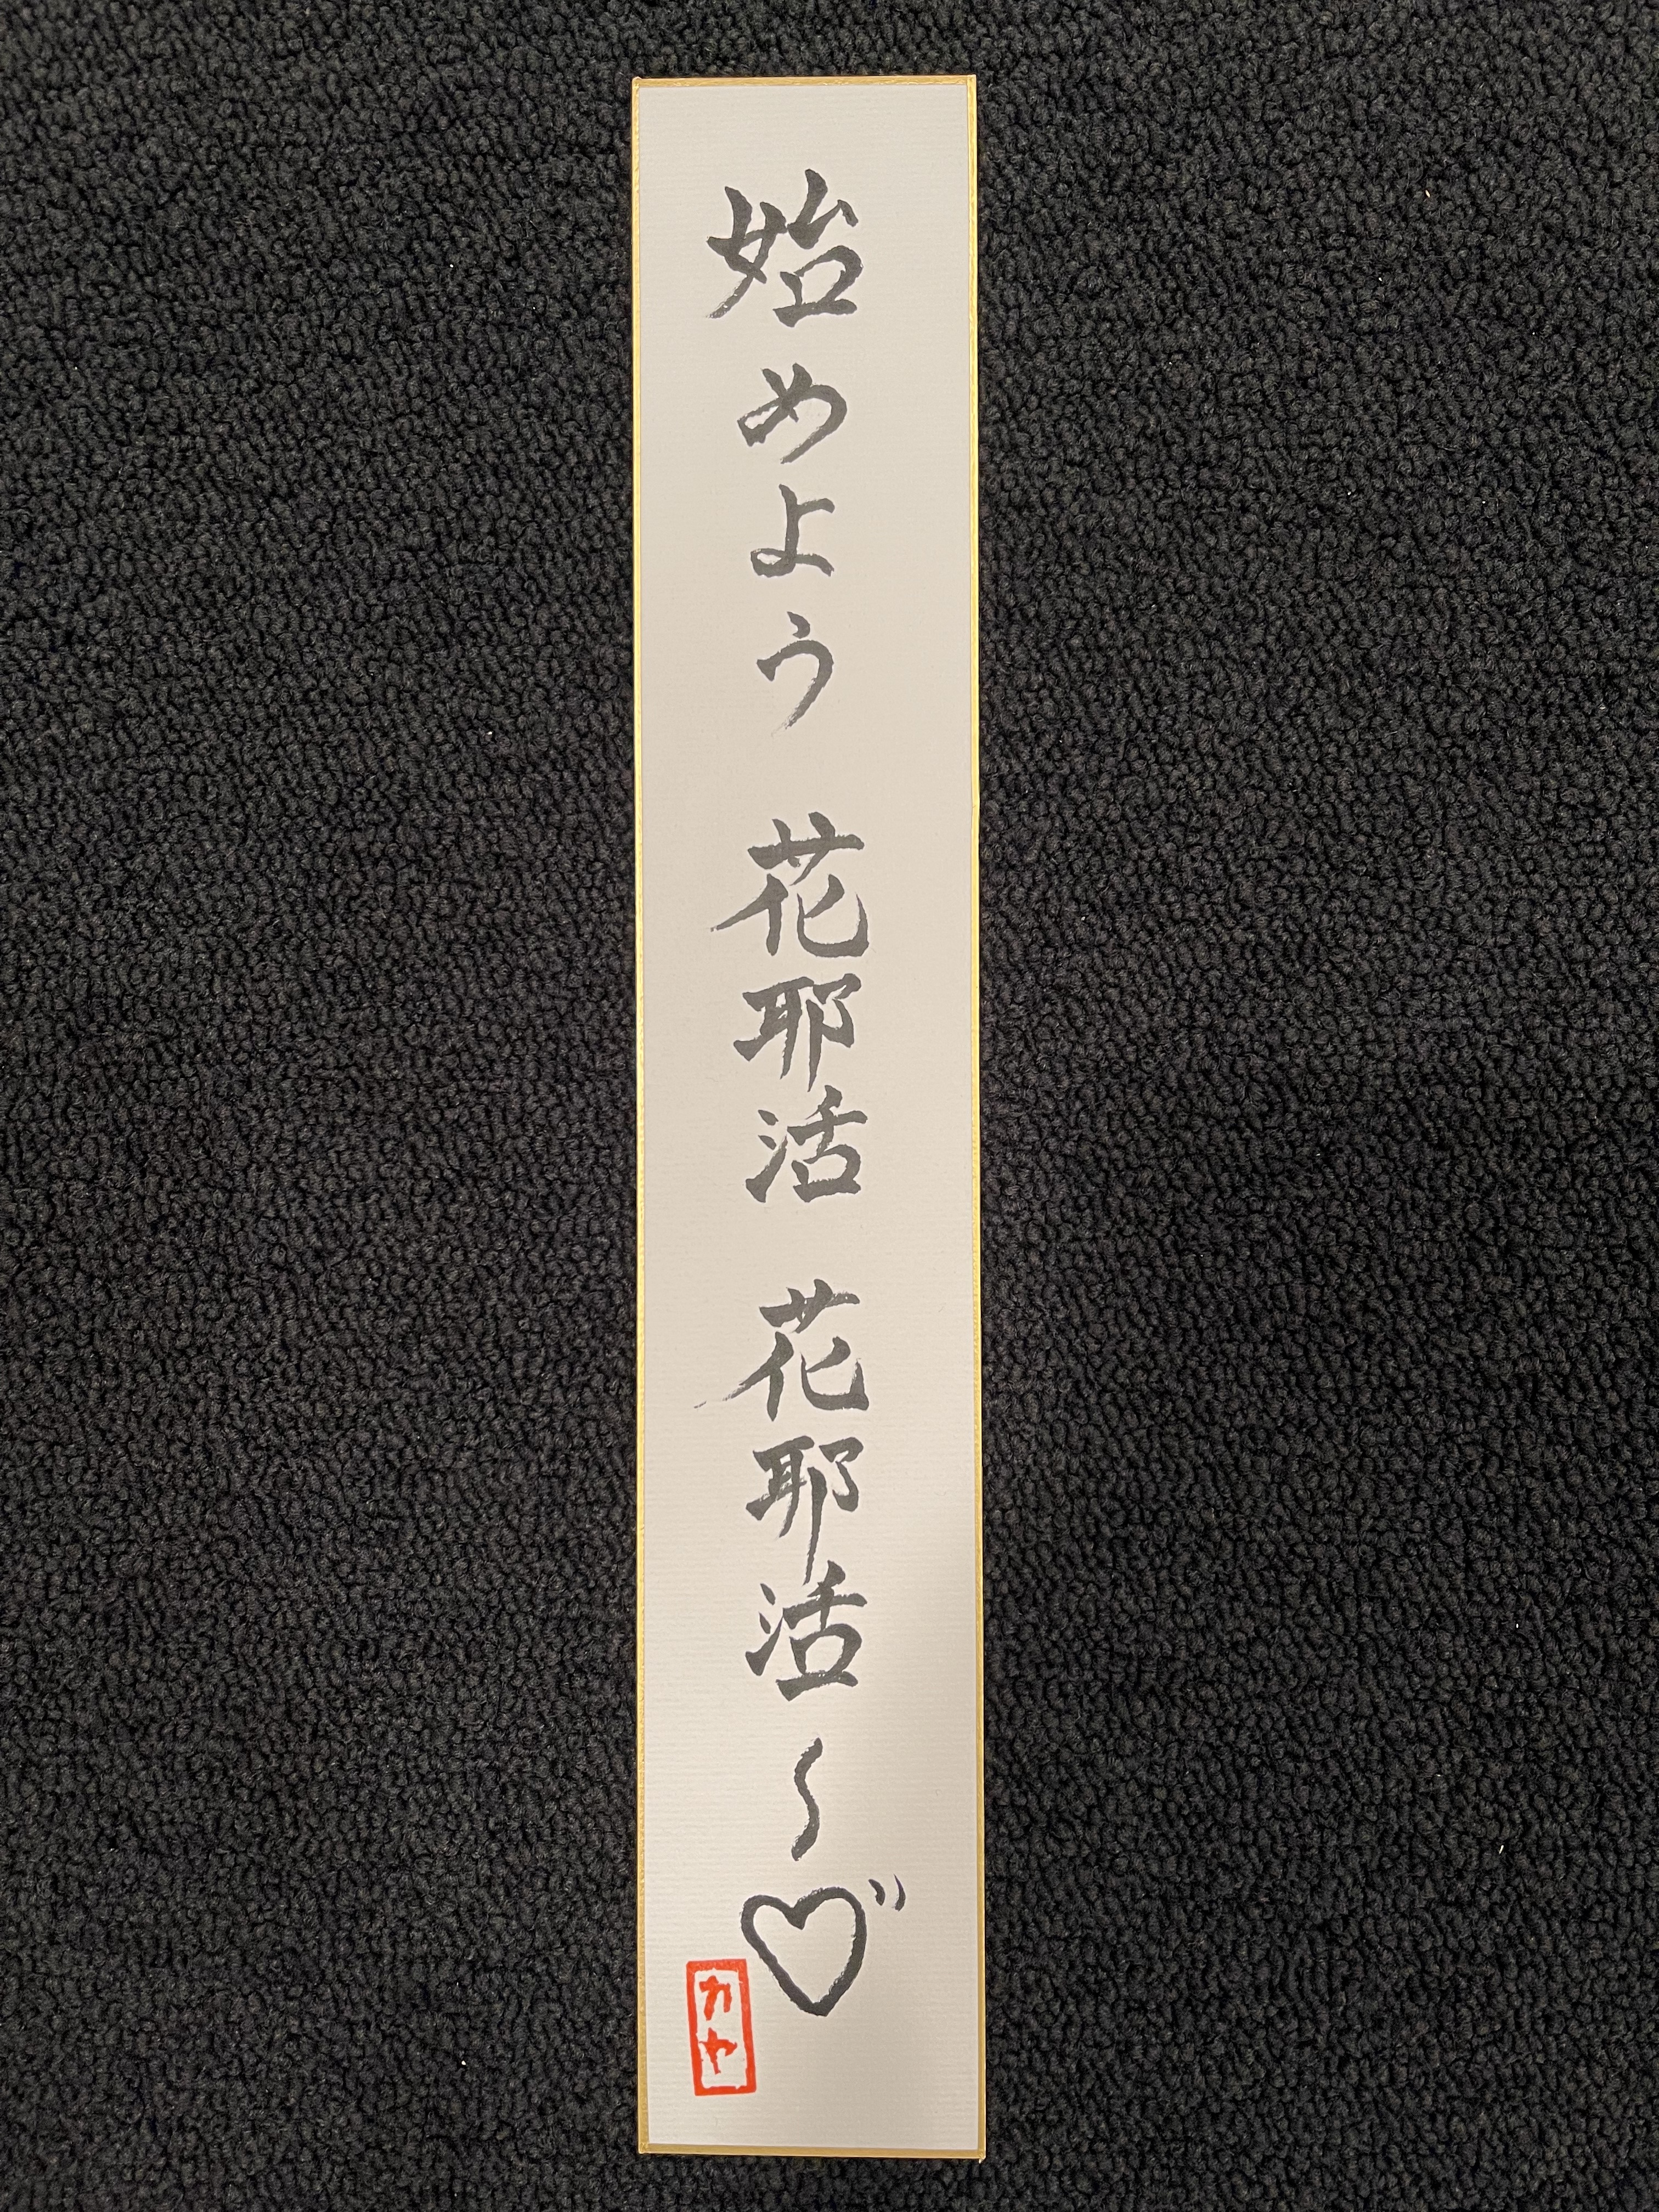 始めよう 花耶活 花耶活〜♡
カヤ